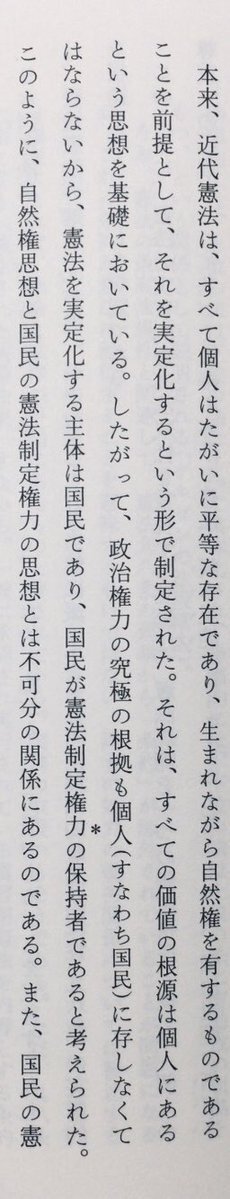 本来、近代憲法は、すべて個人はたがいに平等な存在であり、生まれながら自然権を有するものである
ことを前提として、それを実定化するという形で制定された。それは、すべての価値の根源は個人にある
という思想を基礎においている。したがって、政治権力の究極の根拠も個人(すなわち国民)に存しなくて
はならないから、憲法を実定化する主体は国民であり、国民が憲法制定権力*の保持者であると考えられた。
このように、自然権思想と国民の憲法制定権力の思想とは不可分の関係にあるのである。また、国民の憲